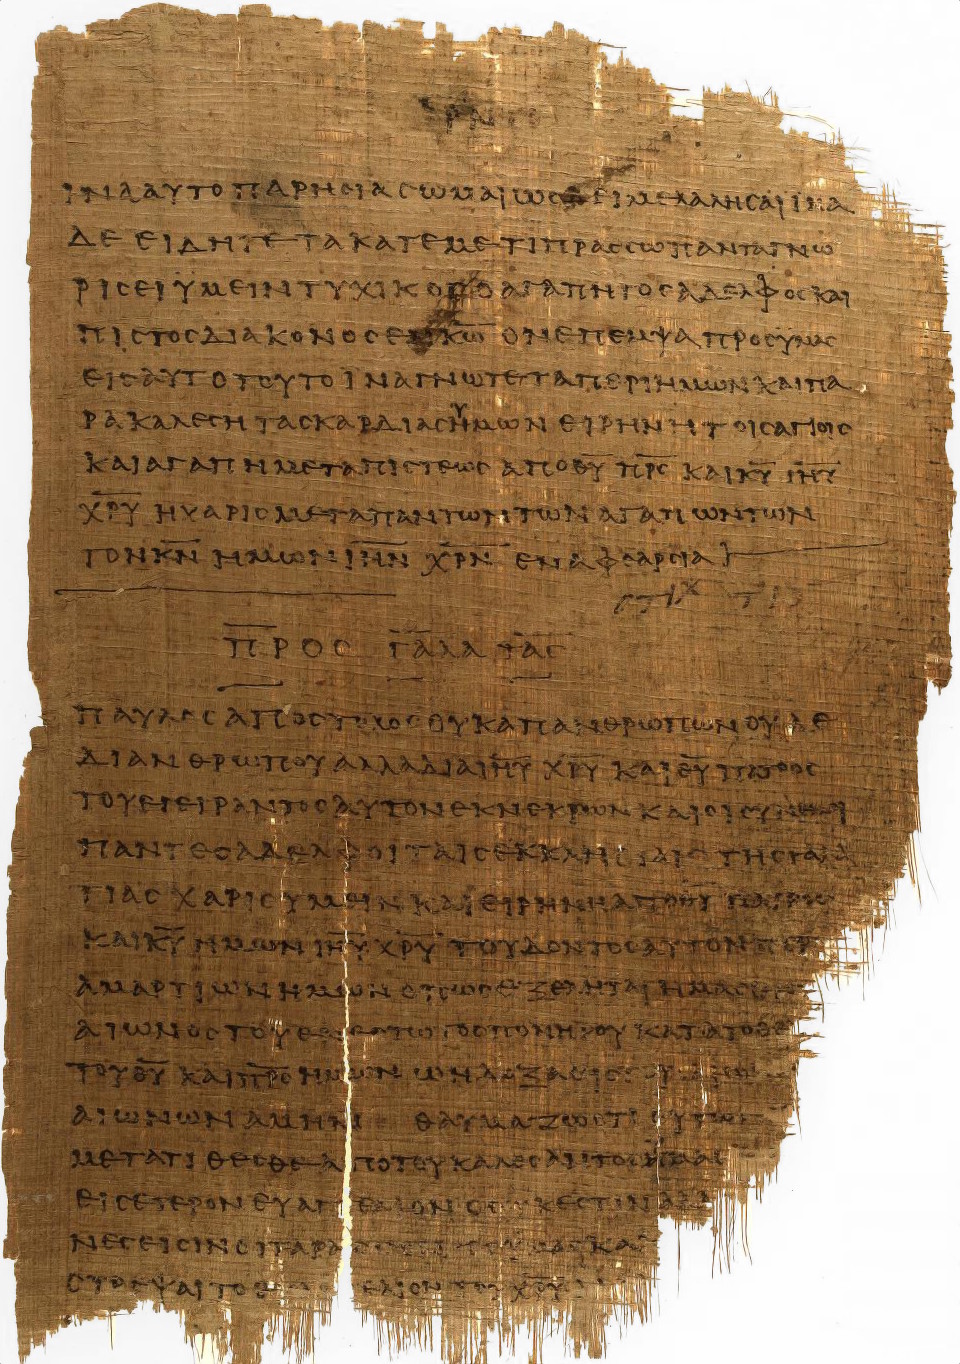 ΙΝΑ ΑΥΤΟ ΠΑΡΗΣΙΑΣΩΜΑΙ ΩΣ ΔΕΙ ΜΕ ΛΑΛΗΣΑΙ ΙΝΑ
ΔΕ ΕΙΔΗΤΕ ΤΑ ΚΑΤ ΕΜΕ ΤΙ ΠΡΑΣΣΩ ΠΑΝΤΑ ΓΝΩ
ΡΙΣΕΙ ΥΜΕΙΝ ΤΥΧΙΚΟΣ Ο ΑΓΑΠΗΤΟΣ ΑΔΕΛΦΟΣ ΚΑΙ
ΠΙΣΤΟΣ ΔΙΑΚΟΝΟΣ ΕΝ Κ̅Ω̅ ΟΝ ΕΠΕΜΨΑ ΠΡΟΣ ΥΜΑΣ
ΕΙΣ ΑΥΤΟ ΤΟΥΤΟ ΙΝΑ ΓΝΩΤΕ ΤΑ ΠΕΡΙ ΗΜΩΝ ΚΑΙ ΠΑ
ΡΑΚΑΛΕΣΗ ΤΑΣ ΚΑΡΔΙΑΣ ΥΗΜΩΝ ΕΙΡΗΝΗ ΤΟΙΣ ΑΓΙΟΙΣ
ΚΑΙ ΑΓΑΠΗ ΜΕΤΑ ΠΙΣΤΕΩΣ ΑΠΟ Θ̅Υ̅ Π̅Ρ̅Σ̅ ΚΑΙ Κ̅Υ̅ Ι̅Η̅Υ̅
Χ̅Ρ̅Υ̅ Η ΧΑΡΙΣ ΜΕΤΑ ΠΑΝΤΩΝ ΤΩΝ ΑΓΑΠΩΝΤΩΝ
ΤΟΝ Κ̅Ν̅ ΗΜΩΝ Ι̅Η̅Ν̅ Χ̅Ρ̅Ν̅ ΕΝ ΑΦΘΑΡΣΙΑ
ΣΤΙΧ
ΠΡΟΣ ΓΑΛΑΤΑΣ
ΠΑΥΛΟΣ ΑΠΟΣΤΟΛΟΣ ΟΥΚ ΑΠ ΑΝΘΡΩΠΩΝ ΟΥΔΕ
ΔΙ ΑΝΘΡΩΠΟΥ ΑΛΛΑ ΔΙΑ Ι̅Η̅Υ̅ Χ̅Ρ̅Υ̅ ΚΑΙ Θ̅Υ̅ ΠΑΤΡΟΣ
ΤΟΥ ΕΓΕΙΡΑΝΤΟΣ ΑΥΤΟΝ ΕΚ ΝΕΚΡΩΝ ΚΑΙ ΟΙ ΣΥΝ ΕΜΟΙ
ΠΑΝΤΕΣ ΑΔΕΛΦΟΙ ΤΑΙΣ ΕΚΚΛΗΣΙΑΙΣ ΤΗΣ ΓΑΛΑ
ΤΙΑΣ ΧΑΡΙΣ ΥΜΕΙΝ ΚΑΙ ΕΙΡΗΝΗ ΑΠΟ Θ̅Υ̅ ΠΑΤΡΟΣ
ΚΑΙ Κ̅Υ̅ ΗΜΩΝ Ι̅Η̅Υ̅ Χ̅Ρ̅Υ̅ ΤΟΥ ΔΟΝΤΟΣ ΑΥΤΟΝ ΠΕΡΙ
ΑΜΑΡΤΙΩΝ ΗΜΩΝ ΟΠΩΣ ΕΞΕΛΗΤΑΙ ΗΜΑΣ
ΑΙΩΝΟΣ ΤΟΥ ΕΝΕΣΤΩΤΟΣ ΠΟΝΗΡΟΥ ΚΑΤΑ ΤΟ ΘΕ
ΤΟΥ Θ̅Υ̅ ΚΑΙ Π̅Ρ̅Ο̅Σ̅ ΗΜΩΝ Ω Η ΔΟΞΑ ΕΙΣ ΤΟΥΣ
ΑΙΩΝΩΝ ΑΜΗΝ ΘΑΥΜΑΖΩ ΟΤΙ ΟΥΤΩΣ
ΜΕΤΑΤΙΘΕΣΘΕ ΑΠΟ ΤΟΥ ΚΑΛΕΣΑΝΤΟΣ ΥΜΑΣ
ΕΙΣ ΕΤΕΡΟΝ ΕΥΑΓΓΕΛΙΟΝ Ο ΟΥΚ ΕΣΤΙΝ ΑΛΛΟ
ΝΕΣ ΕΙΣΙΝ ΟΙ ΤΑΡΑΣΣΟΝΤΕΣ ΥΜΑΣ ΚΑΙ
ΣΤΡΕΨΑΙ ΤΟ ΕΥΑΓΓΕΛΙΟΝ ΤΟΥ Χ̅Ρ̅Υ̅